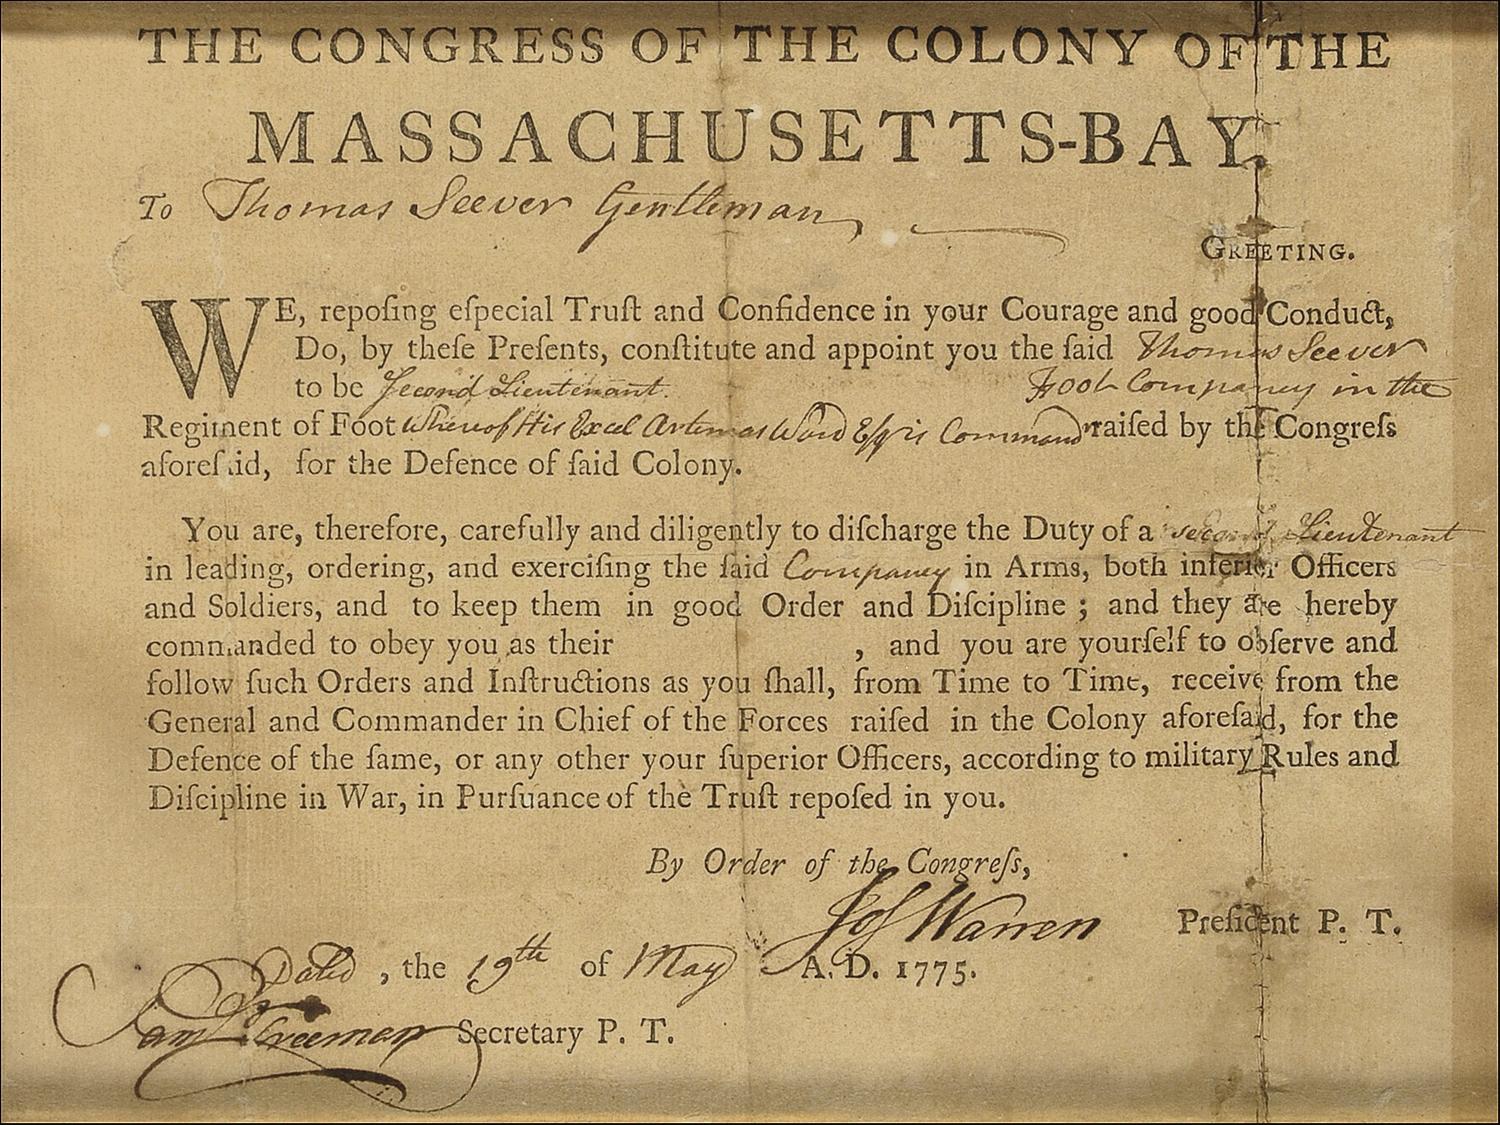 THE CONGRESS OF THE COLONY OF THE
MASSACHUSETTS-BAY.
To Thomas Seever Gentleman,
GREETING.
WE, repoſing eſpecial Truſt and Confidence in your Courage and good Conduct,
Do, by theſe Preſents, conſtitute and appoint you the ſaid Thomas Seever
to be Second Lieutenant. Foot Company in the
Regiment of Foot Whereof His Excel Artemas Ward Esqr is Command raiſed by the Congreſs
aforeſaid, for the Defence of ſaid Colony.
You are, therefore, carefully and diligently to diſcharge the Duty of a second Lieutenant
in leading, ordering, and exerciſing the ſaid Company in Arms, both inferior Officers
and Soldiers, and to keep them in good Order and Diſcipline ; and they are hereby
commanded to obey you as their , and you are yourſelf to obſerve and
follow ſuch Orders and Inſtructions as you ſhall, from Time to Time, receive from the
General and Commander in Chief of the Forces raiſed in the Colony aforeſaid, for the
Defence of the ſame, or any other your ſuperior Officers, according to military Rules and
Diſcipline in War, in Purſuance of the Truſt repoſed in you.
By Order of the Congreſs,
Jos Warren Preſident P. T.
Dated , the 19th of May A. D. 1775.
Saml Freeman Secretary P. T.